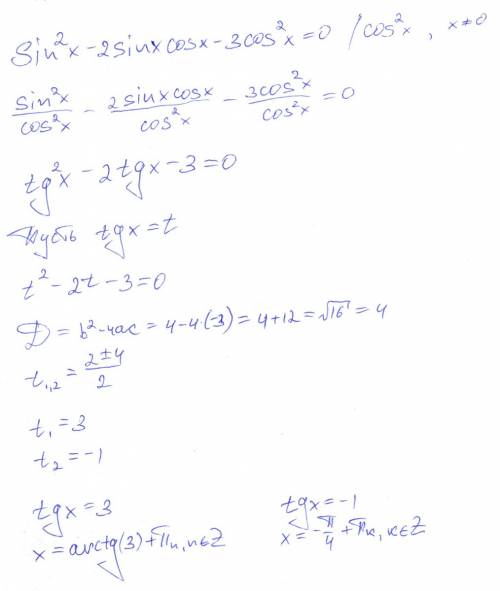 sin²x - 2sinx cosx - 3cos²x = 0 /cos²x, x≠0
sin²x/cos²x - 2sinxcosx/cos²x - 3cos²x/cos²x = 0
tg²x - 2tgx - 3 = 0
Пусть tgx = t
t² - 2t - 3 = 0
D = b² - 4ac = 4 - 4·(-3) = 4 + 12 = √16 = 4
t₁,₂ = 2±4/2
t₁ = 3
t₂ = -1
tgx = 3 tgx = -1
x = arctg(3) + πn, n∈Z x = -π/4 + πk, k∈Z